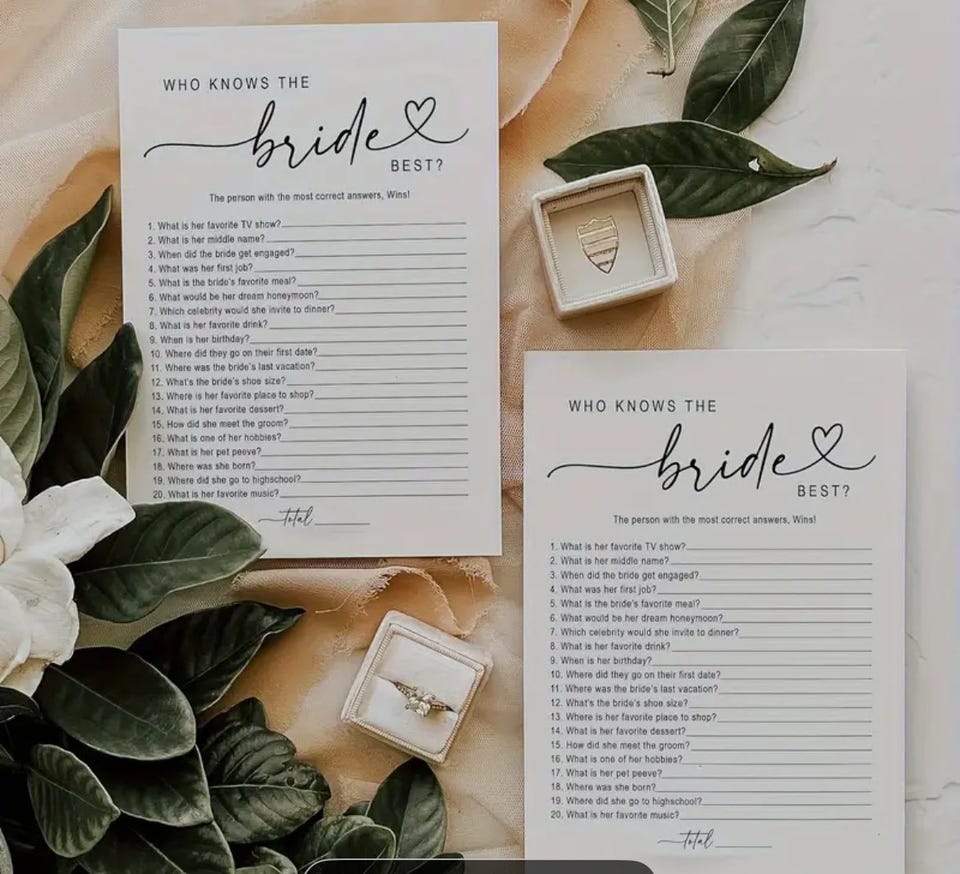 WHO KNOWS THE
bride
BEST?
The person with the most correct answers, Wins!
1. What is her favorite TV show?
2. What is her middle name?
3. When did the bride get engaged?
4. What was her first job?
5. What is the bride's favorite meal?
6. What would be her dream honeymoon?
7. Which celebrity would she invite to dinner?
8. What is her favorite drink?
9. When is her birthday?
10. Where did they go on their first date?
11. Where was the bride's last vacation?
12. What's the bride's shoe size?
13. Where is her favorite place to shop?
14. What is her favorite dessert?
15. How did she meet the groom?
16. What is one of her hobbies?
17. What is her pet peeve?
18. Where was she born?
19. Where did she go to highschool?
20. What is her favorite music?
total
WHO KNOWS THE
bride
BEST?
The person with the most correct answers, Wins!
1. What is her favorite TV show?
2. What is her middle name?
3. When did the bride get engaged?
4. What was her first job?
5. What is the bride's favorite meal?
6. What would be her dream honeymoon?
7. Which celebrity would she invite to dinner?
8. What is her favorite drink?
9. When is her birthday?
10. Where did they go on their first date?
11. Where was the bride's last vacation?
12. What's the bride's shoe size?
13. Where is her favorite place to shop?
14. What is her favorite dessert?
15. How did she meet the groom?
16. What is one of her hobbies?
17. What is her pet peeve?
18. Where was she born?
19. Where did she go to highschool?
20. What is her favorite music?
total